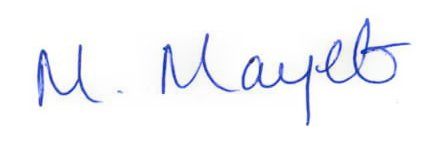 M. Mayet